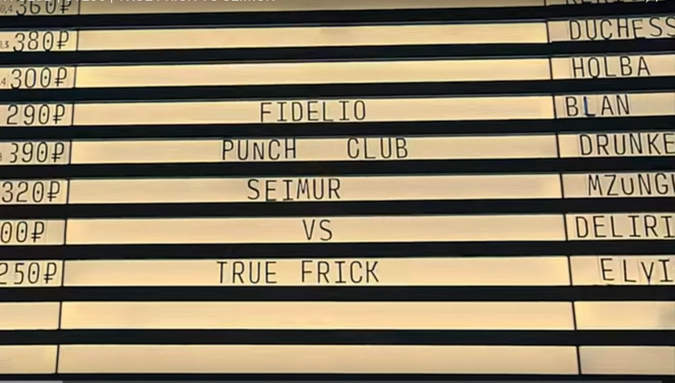 360₽
380₽ DUCHESS
300₽ HOLBA
290₽ FIDELIO BLAN
390₽ PUNCH CLUB DRUNKE
320₽ SEIMUR MZUNGU
00₽ VS DELIRI
250₽ TRUE FRICK ELVI